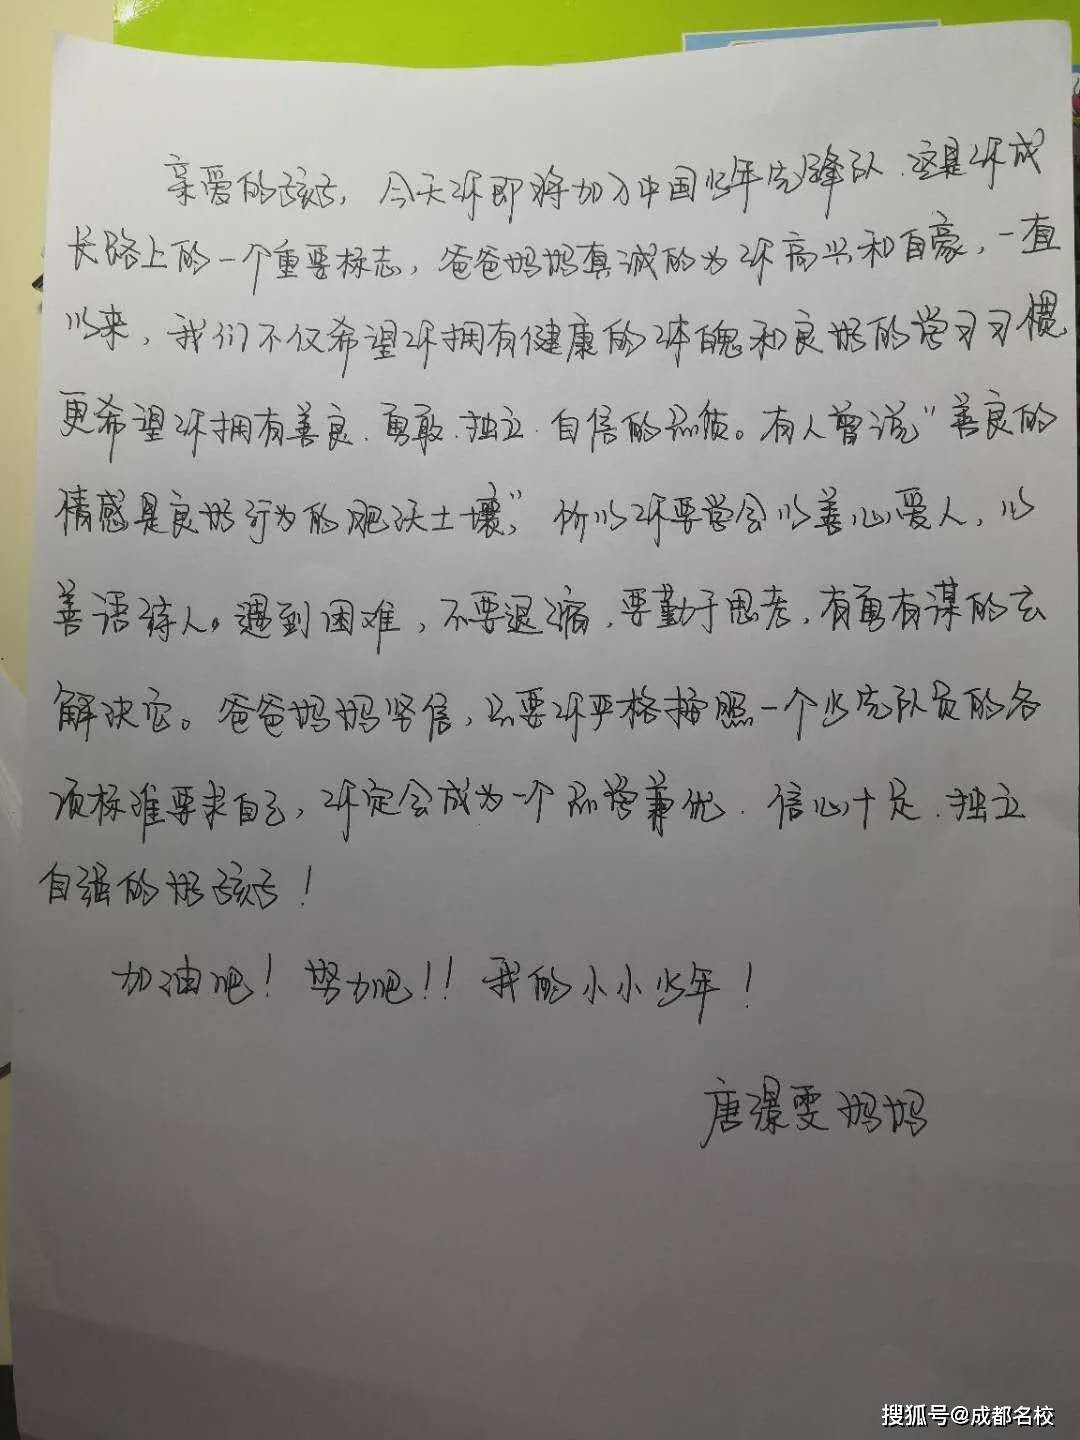 亲爱的孩子，今天你即将加入中国少年先锋队、这是你成
长路上的一个重要标志，爸爸妈妈真诚的为你高兴和自豪，一直
以来，我们不仅希望你拥有健康的体魄和良好的学习习惯
更希望你拥有善良、勇敢、独立、自信的品质。有人曾说"善良的
情感是良好行为的肥沃土壤"，所以你要学会以善心爱人，以
善语待人。遇到困难，不要退缩，要勤于思考，有勇有谋的去
解决它。爸爸妈妈坚信，只要你严格按照一个少先队员的各
项标准要求自己，你定会成为一个品学兼优、信心十足、独立
自强的好孩子！
加油吧！努力吧！！我的小小少年！
唐瀑雯妈妈
搜狐号@成都名校